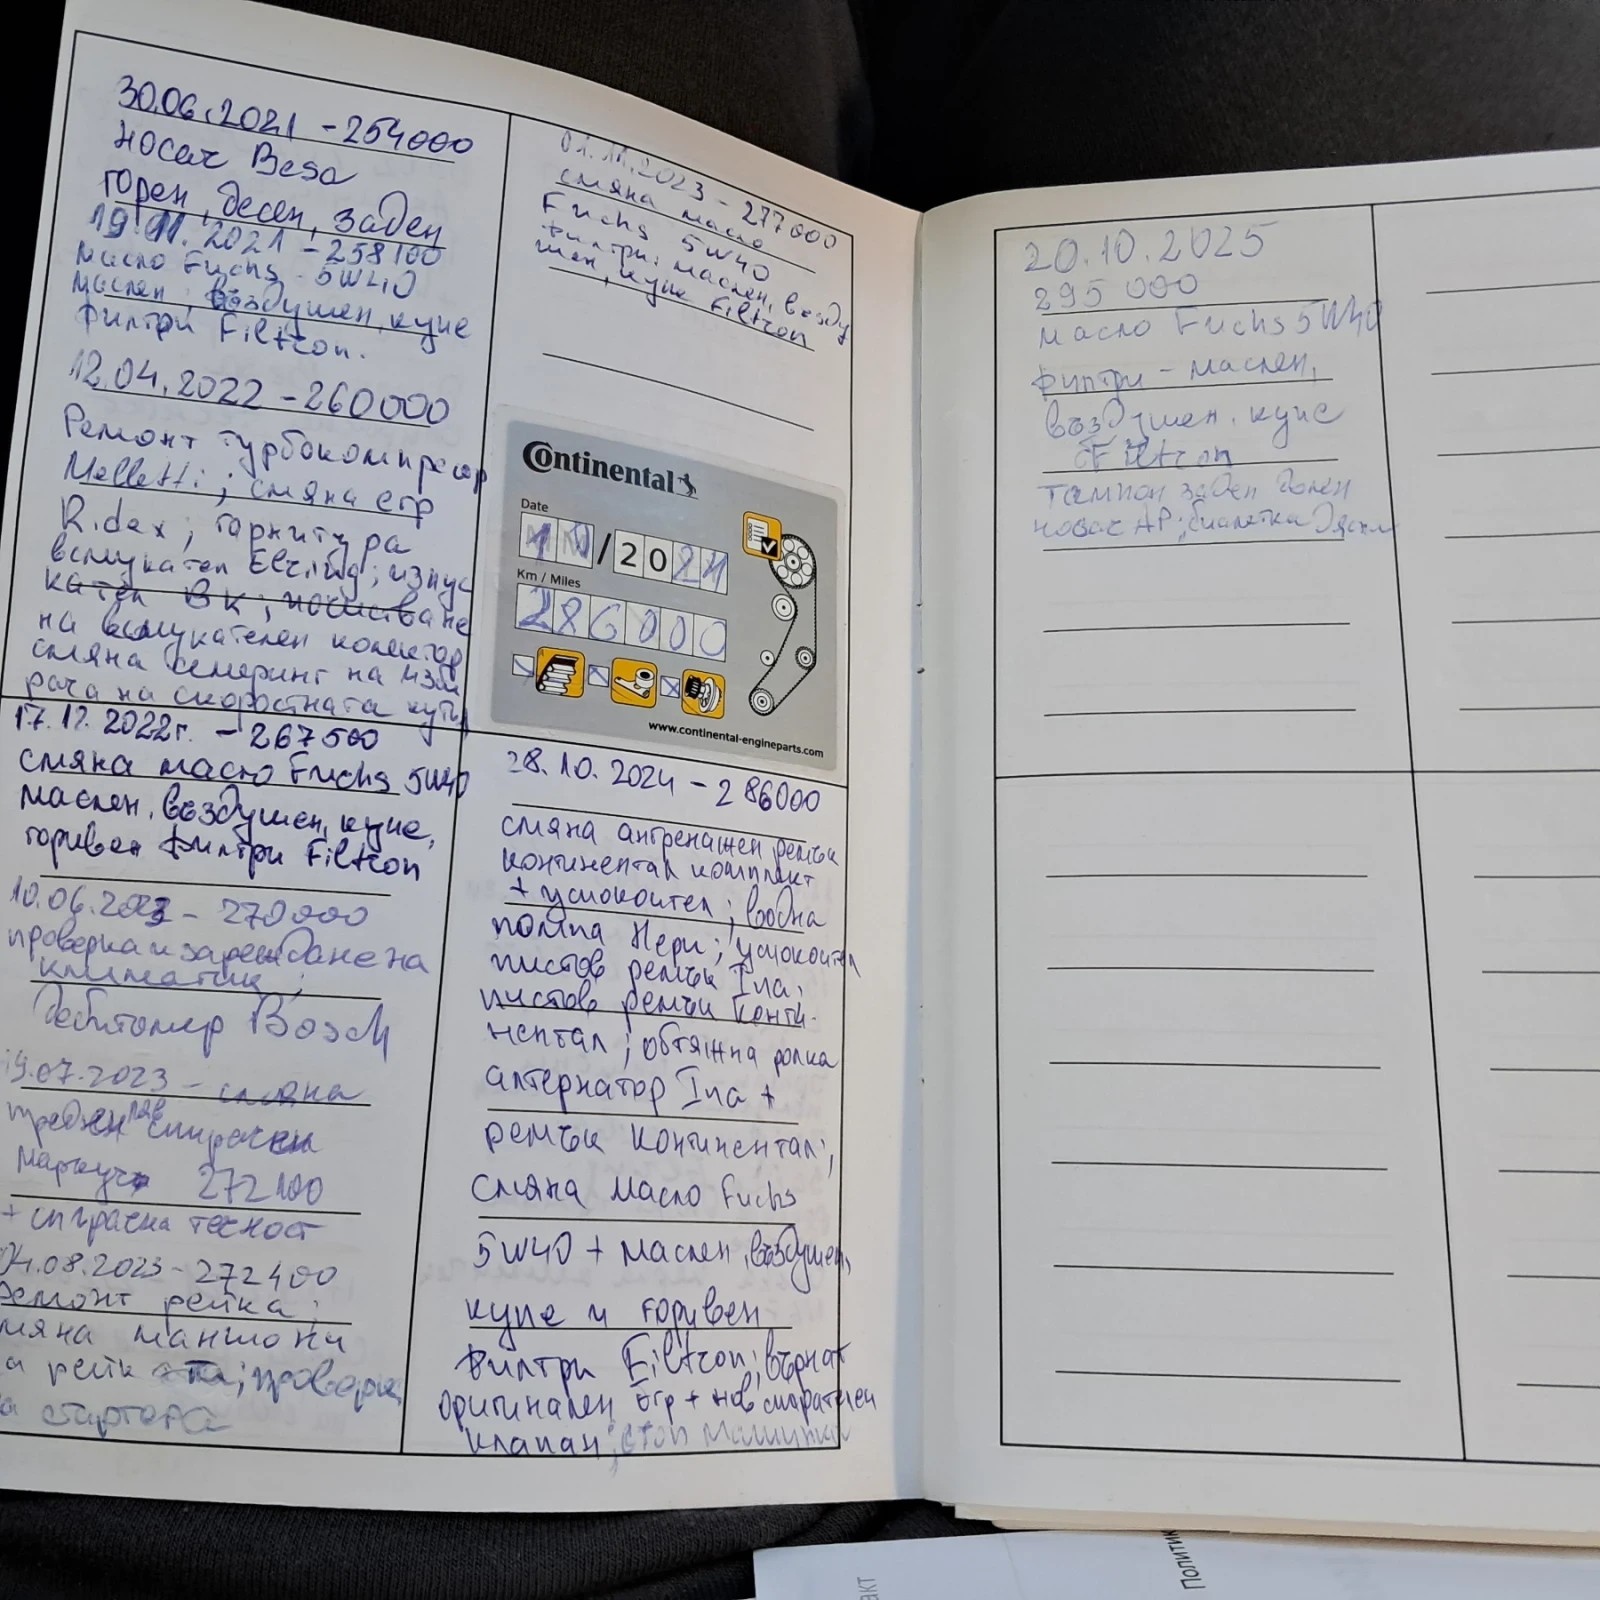 30.06.2021 - 254000
носач Besa
горен, десен, заден
19.11.2021 - 258100
масло Fuchs - 5W40
маслен, въздушен, купе
филтри Filtron.
12.04.2022 - 260000
Ремонт турбокомпресор
Melletti; смяна егр
Ridex; гарнитура
всмукател Elring; изпус
кател ВК; почистване
на всмукателен колектор
смяна семеринг на изби
рача на скоростната кутия
17.12.2022г. - 267500
смяна масло Fuchs 5W40
маслен, въздушен, купе,
горивен филтри Filtron
10.06.2023 - 270000
проверка и зареждане на
климатик;
дебитомер Bosch
19.07.2023 - смяна
преден ляв спирачен
маркуч 272100
+ спирачна течност
04.08.2023 - 272400
ремонт рейка;
маншони
рейката; проверка
стартера
01.11.2023 - 277000
смяна масло
Fuchs 5W40
филтри: маслен, възду
шен, купе Filtron
Continental
Date
10/2024
Km / Miles
286000
www.continental-engineparts.com
28.10.2024 - 286000
смяна ангренажен ремък
континентал комплект
+ успокоител; водна
помпа Hepu; успокоител
пистов ремък Ina;
пистов ремък Конти-
нентал; обтяжна ролка
алтернатор Ina +
ремък Континентал;
смяна масло Fuchs
5W40 + маслен, въздушен,
купе и горивен
филтри Filtron; върнат
оригинален егр + нов
клапан; стоп
20.10.2025
295 000
масло Fuchs 5W40
филтри - маслен,
въздушен, купе
Filtron
тампон заден долен
носач АР; биалетка дясна
Политик
акт